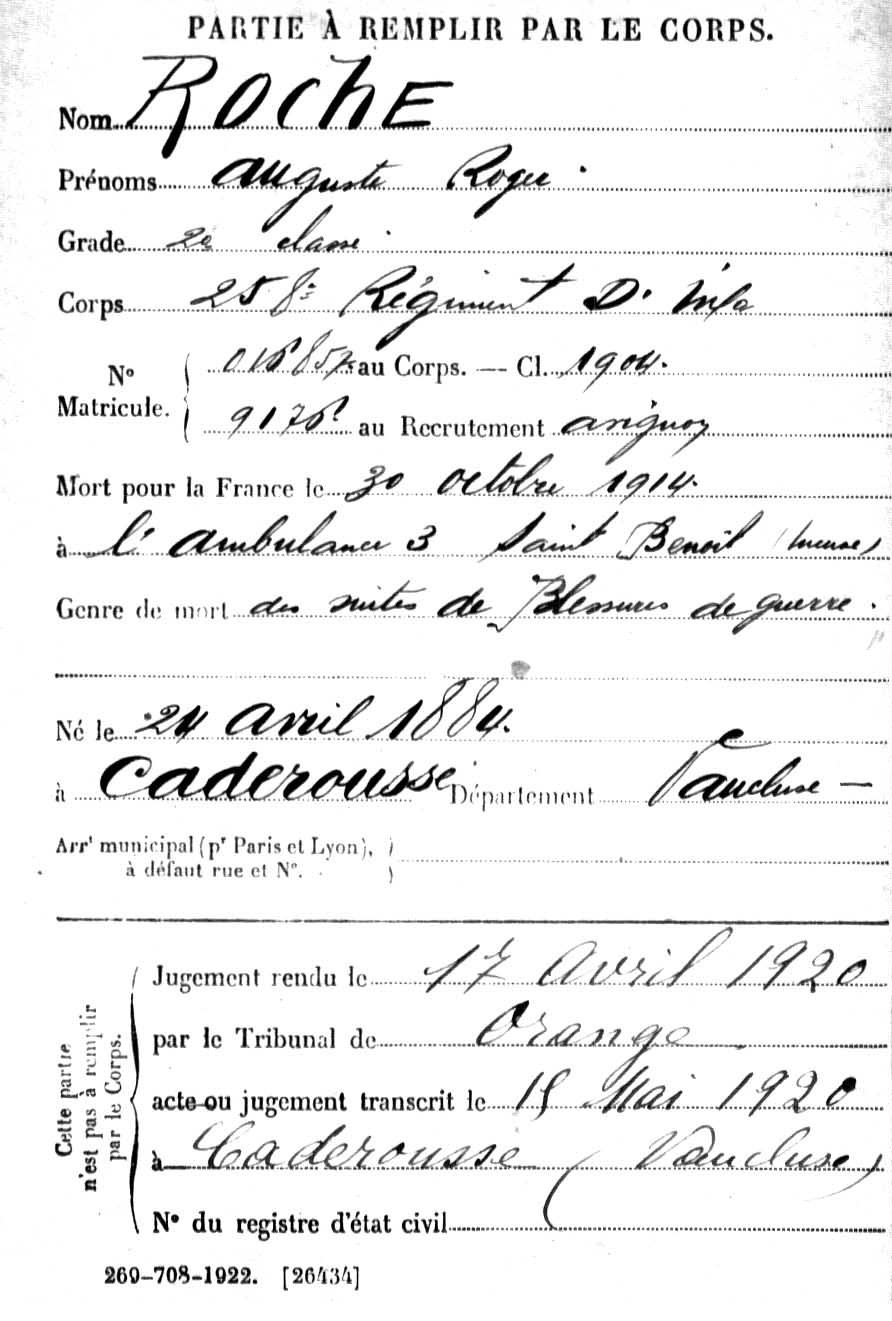 PARTIE À REMPLIR PAR LE CORPS.
Nom ROCHE
Prénoms Auguste Roger
Grade 2e classe
Corps 258e Régiment D'Infie
No Matricule. { au Corps. — Cl. 1904.
au Recrutement Avignon
Mort pour la France le 30 octobre 1914.
à l'ambulance 3 Saint Benoit (Meuse)
Genre de mort des suites de Blessures de guerre.
Né le 24 avril 1884.
à Caderousse Département Vaucluse —
Arrt municipal (pr Paris et Lyon),
à défaut rue et No.
Cette partie n'est pas à remplir par le Corps.
Jugement rendu le 17 Avril 1920
par le Tribunal de Orange
acte ou jugement transcrit le Mai 1920
à Caderousse (Vaucluse)
No du registre d'état civil
269-708-1922. [26434]